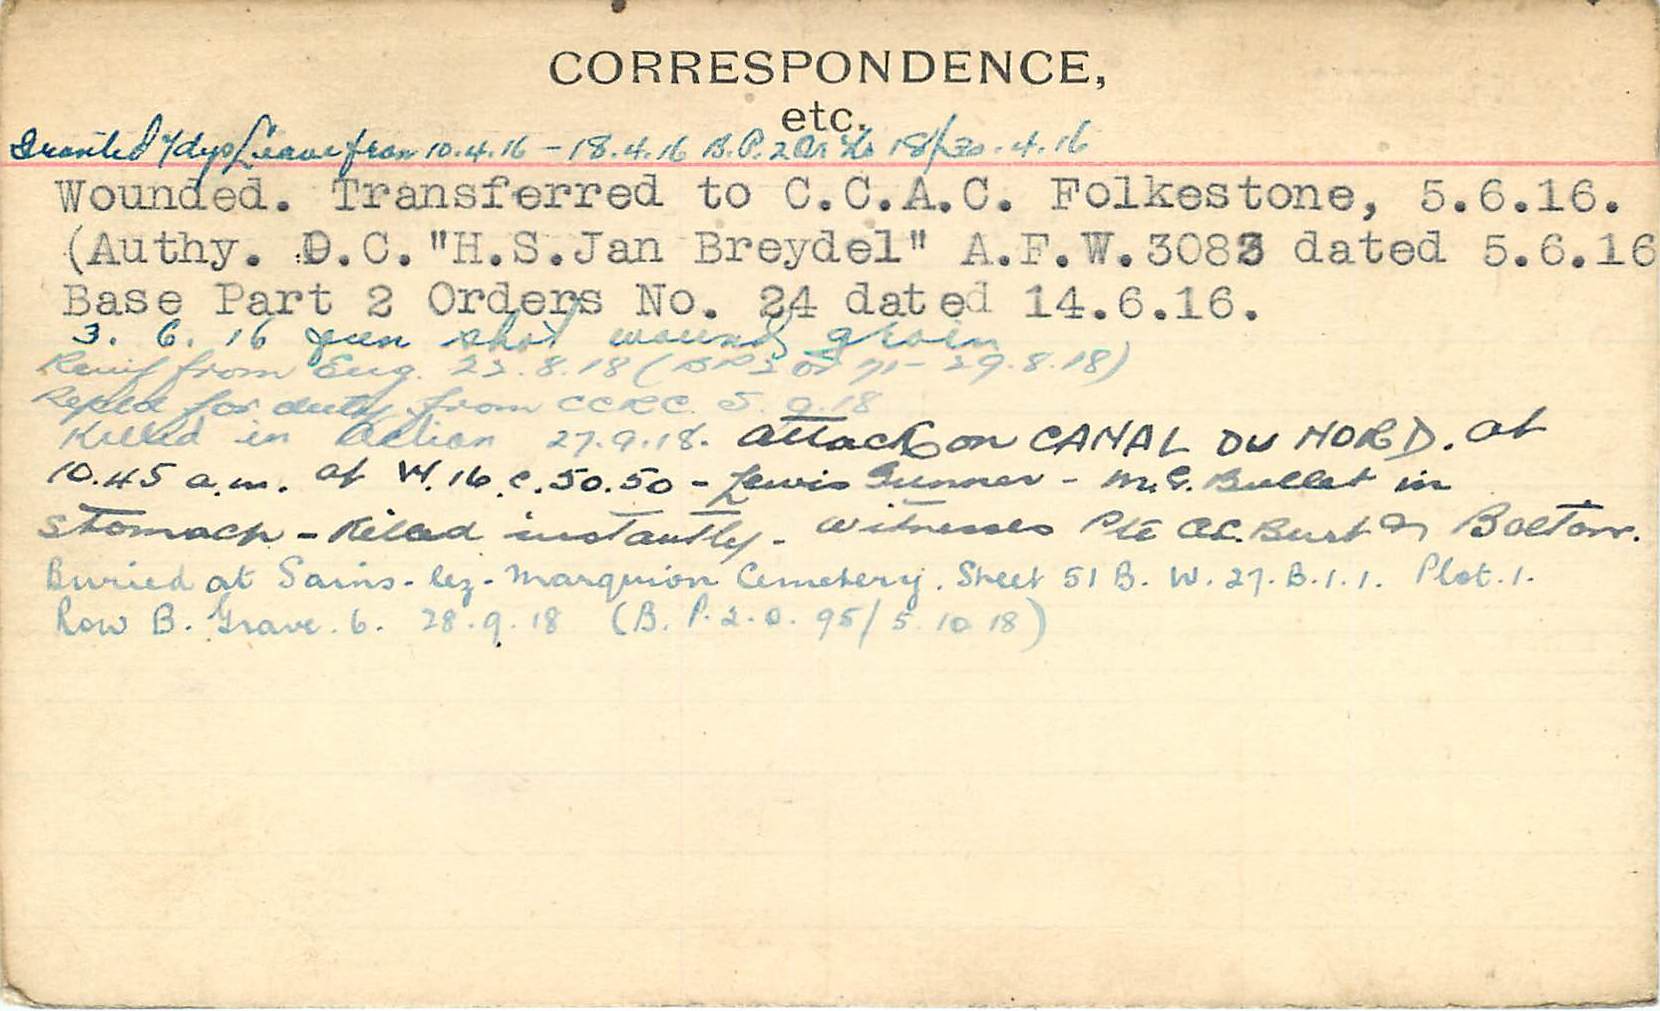 CORRESPONDENCE,
etc.
Granted 7 dys Leave from 10.4.16 - 18.4.16 B.P.2 Or No 18/30.4.16
Wounded. Transferred to C.C.A.C. Folkestone, 5.6.16.
(Authy. O.C."H.S.Jan Breydel" A.F.W.3083 dated 5.6.16
Base Part 2 Orders No. 24 dated 14.6.16.
3. 6. 16 gun shot wound groin
Reinf from Eng. 23.8.18 (BP2 or 71 - 29.8.18)
Repted for duty from CCRC 5.9.18
Killed in Action 27.9.18. attack on CANAL DU NORD. at
10.45 a.m. at W.16.c.50.50 - Lewis Gunner - M.G. Bullet in
Stomach - Killed instantly - Witnesses Pte Burt Bolton.
Buried at Sains-lez-Marquion Cemetery. Sheet 51 B. W. 27. B.1.1. Plot.1.
Row B. Grave. 6. 28.9.18 (B. P.2.0. 95/5 10 18)